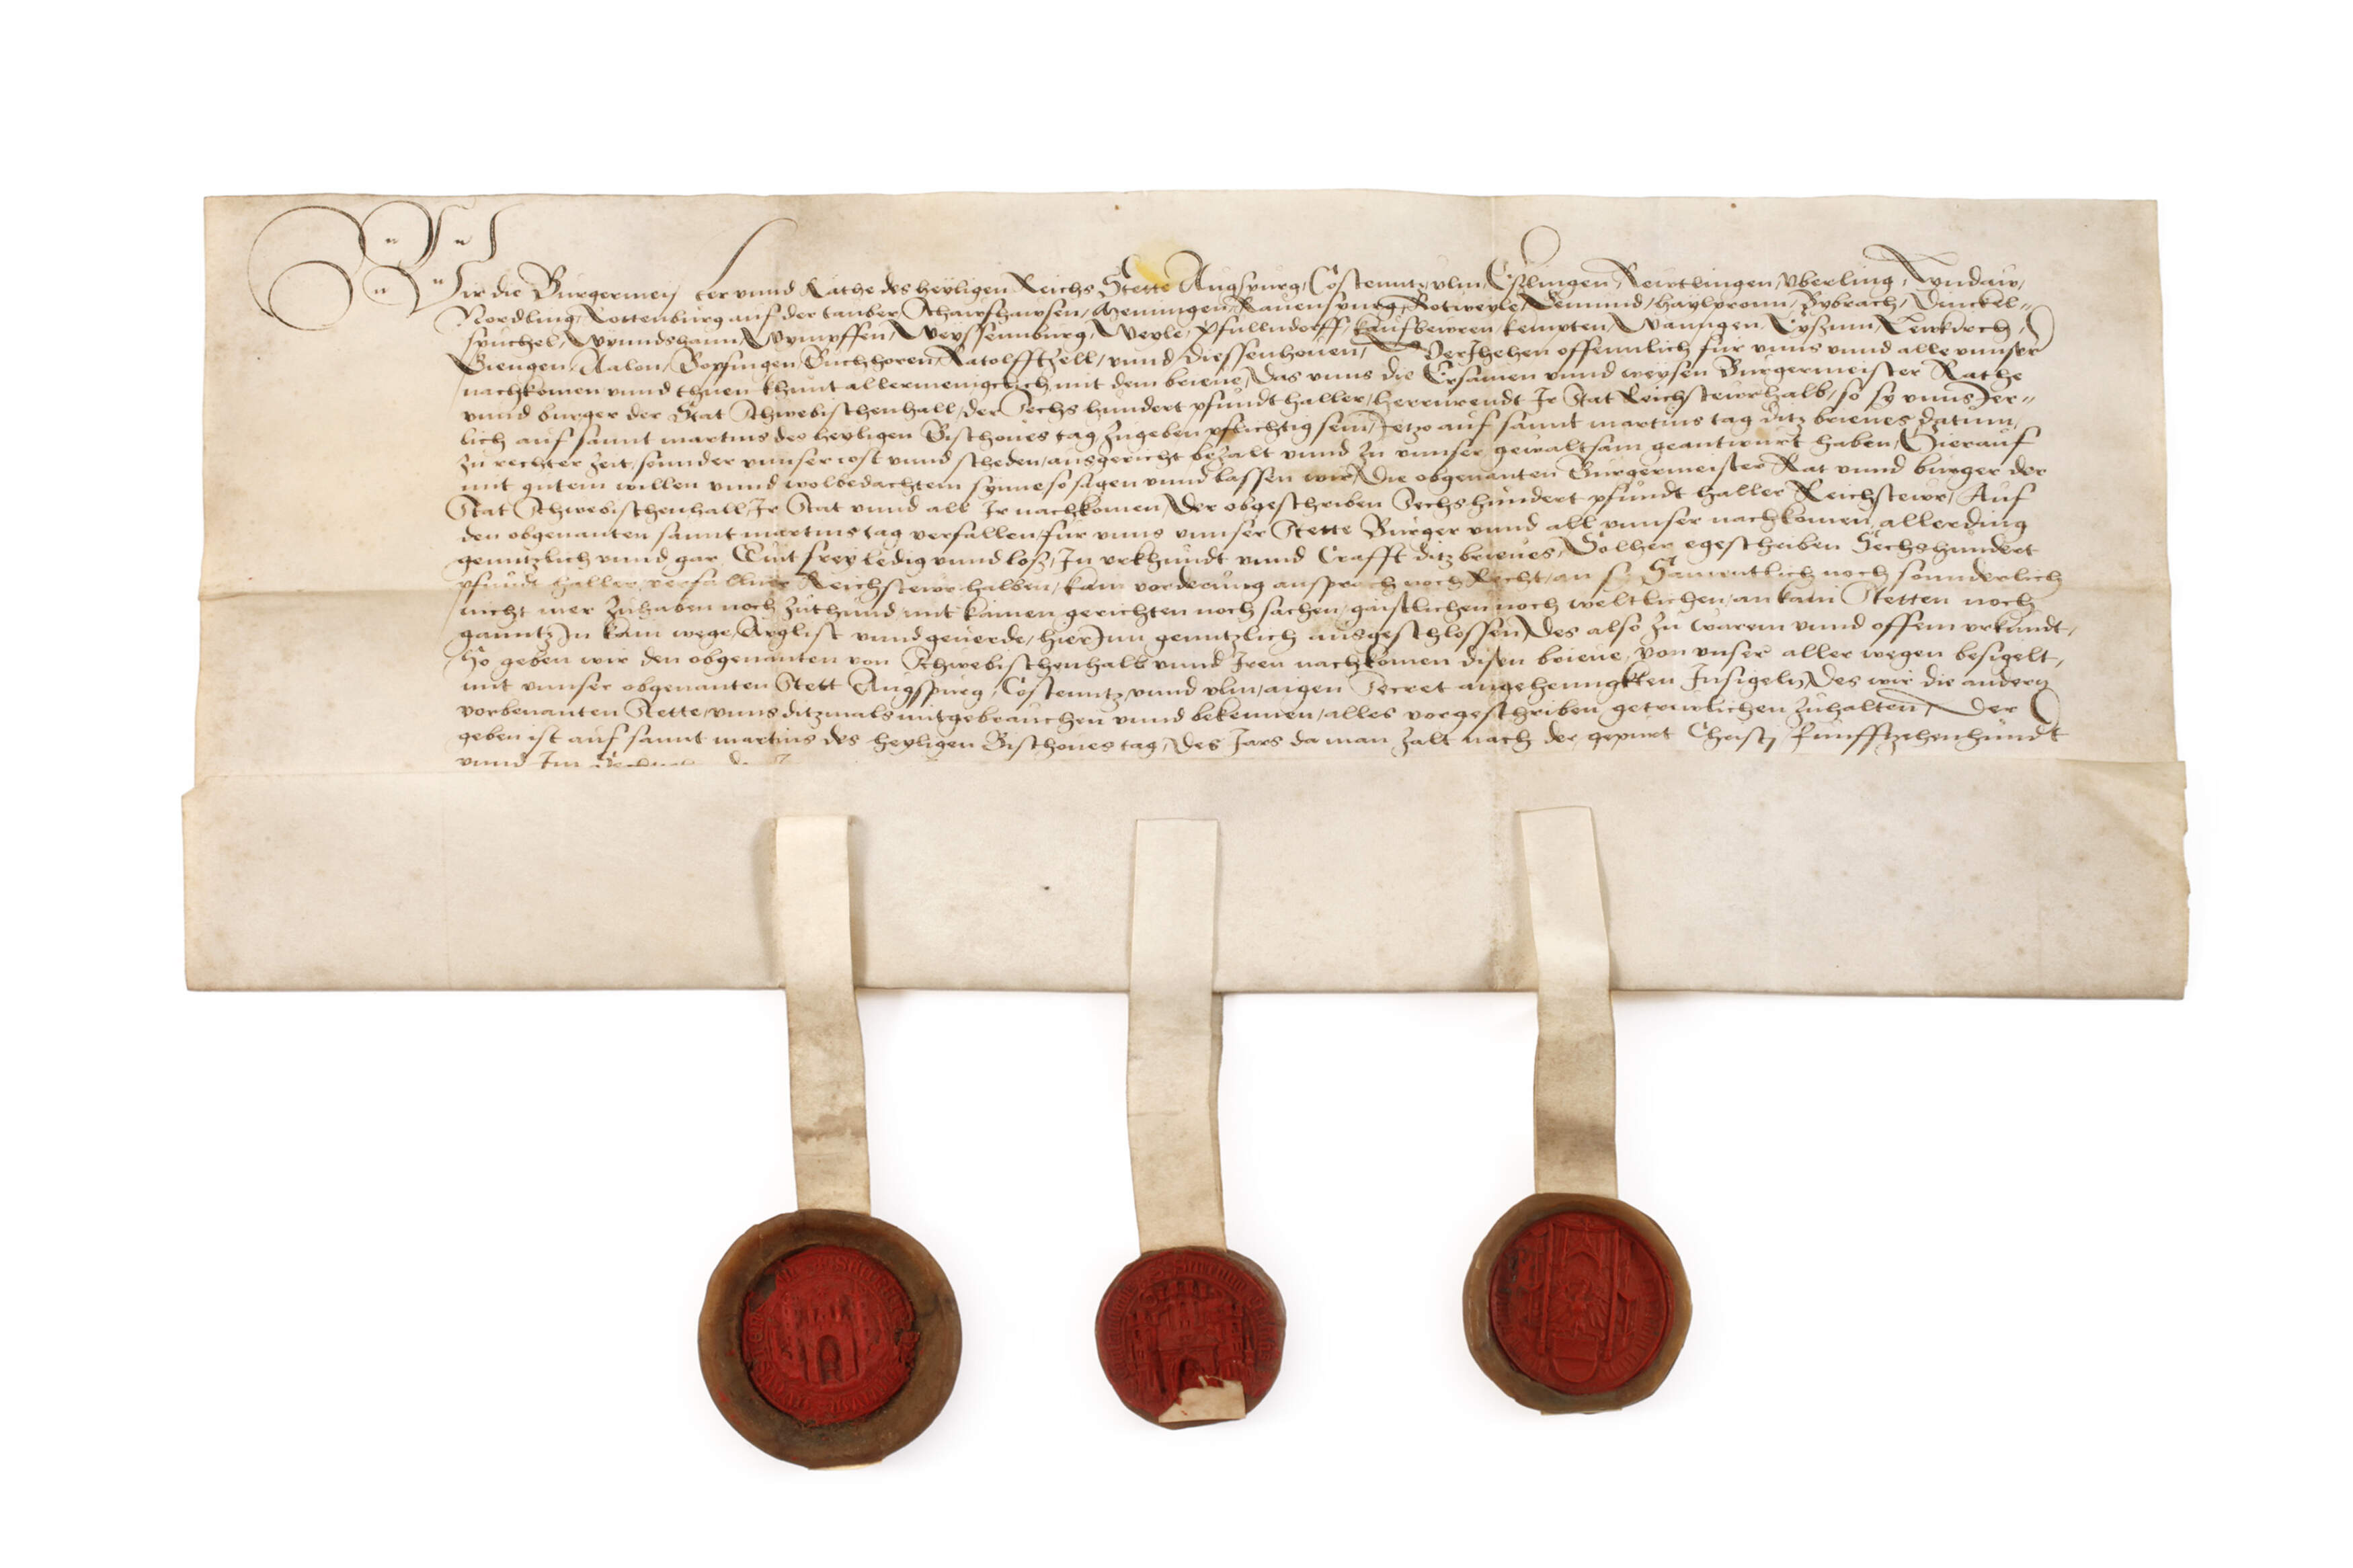 Wir die Burgermeister vnnd Räthe des heyligen Reichs Stette Augspurg, Costenntz, vlm, Eszlingen, Rewtlingen, Vberling, Lyndaw,
Nordling, Rottenburg auf der tauber, Schawfhawsen, Memingen, Rauenspurg, Rotweyle, Gemund, haylpronn, Bybrach, Dinckel-
spuchel, Wynndshaim, Wympffen, Weyssennburg, Weyle, Pfullndorff, kaufbewren, kempten, Wanngen, Eysznin, Lewkirch,
Giengen, Aalon, Bopfingen, Buchhoren, Ratolfftzell, vnnd, Diessenhouen, Verjhehen offennlich für vnns vnnd alle vnnser
nachkomen vnnd thuen khunt allermenigclich mit dem brieue, Das vnns die Ersamen vnnd weysen Burgermeister Räthe
vnnd burger der Stat Schwebischenhall, der Sechs hundert pfundt haller, herrurendt Ir Stat Reichstewrhalb, so sy vnns Jer-
lich auf sannt martins des heyligen Bischoues tag zugeben pflichtig sein, Jetzo auf sannt martins tag ditz brieues datum,
zu rechter zeit, sonnder vnnser cost vnnd scheden, ausgericht bezalt vnnd zu vnnser gewaltsam geantwurt haben, Hierauf
mit gutem willen vnnd wolbedachtem synne so sagen vnnd lassen wir, Die obgenanten Burgermeister Rat vnnd burger der
Stat Schwebischenhall, Ir Stat vnnd all Ir nachkomen, Der obgeschriben Sechshundert pfundt haller Reichstewr, Auf
den obgenanten sannt martins tag verfallen, für vnns vnnser Stette Burger vnnd all vnnser nachkomen, allerding
genntzlich vnnd gar Quit frey ledig vnnd loß, In vrkhundt vnnd Crafft ditz brieues, Solher egeschriben Sechshundert
pfundt haller verfallner Reichstewr halben, kain vorderung ansprach noch Recht, an sy Samentlich noch sonnderlich
nicht mer zuhaben noch zuthund, mit kainen gerichten noch sachen, gaistlichen noch weltlichen, an kain Stetten noch
ganntz In kain wege, Arglist vnnd geuerde, hierJnn genntzlich ausgeschlossen, Des also zu warem vnnd offem vrkundt,
So geben wir den obgenanten von Schwebischenhall vnnd Iren nachkomen disen brieue, von vnser aller wegen besigelt,
mit vnnser obgenanten Stett Augspurg, Costenntz, vnnd vlm, aigen Secret angehenngkten Insigeln, Des wir die andern
vorbenanten Stette, vnns ditzmals mitgebrauchen vnnd bekennen, alles vorgeschriben getrewlichen zuhalten, Der
geben ist auf sannt martins des heyligen Bischoues tag, Des Jars da man zalt nach der gepurt Christj funffzehenhundt
vnnd Im